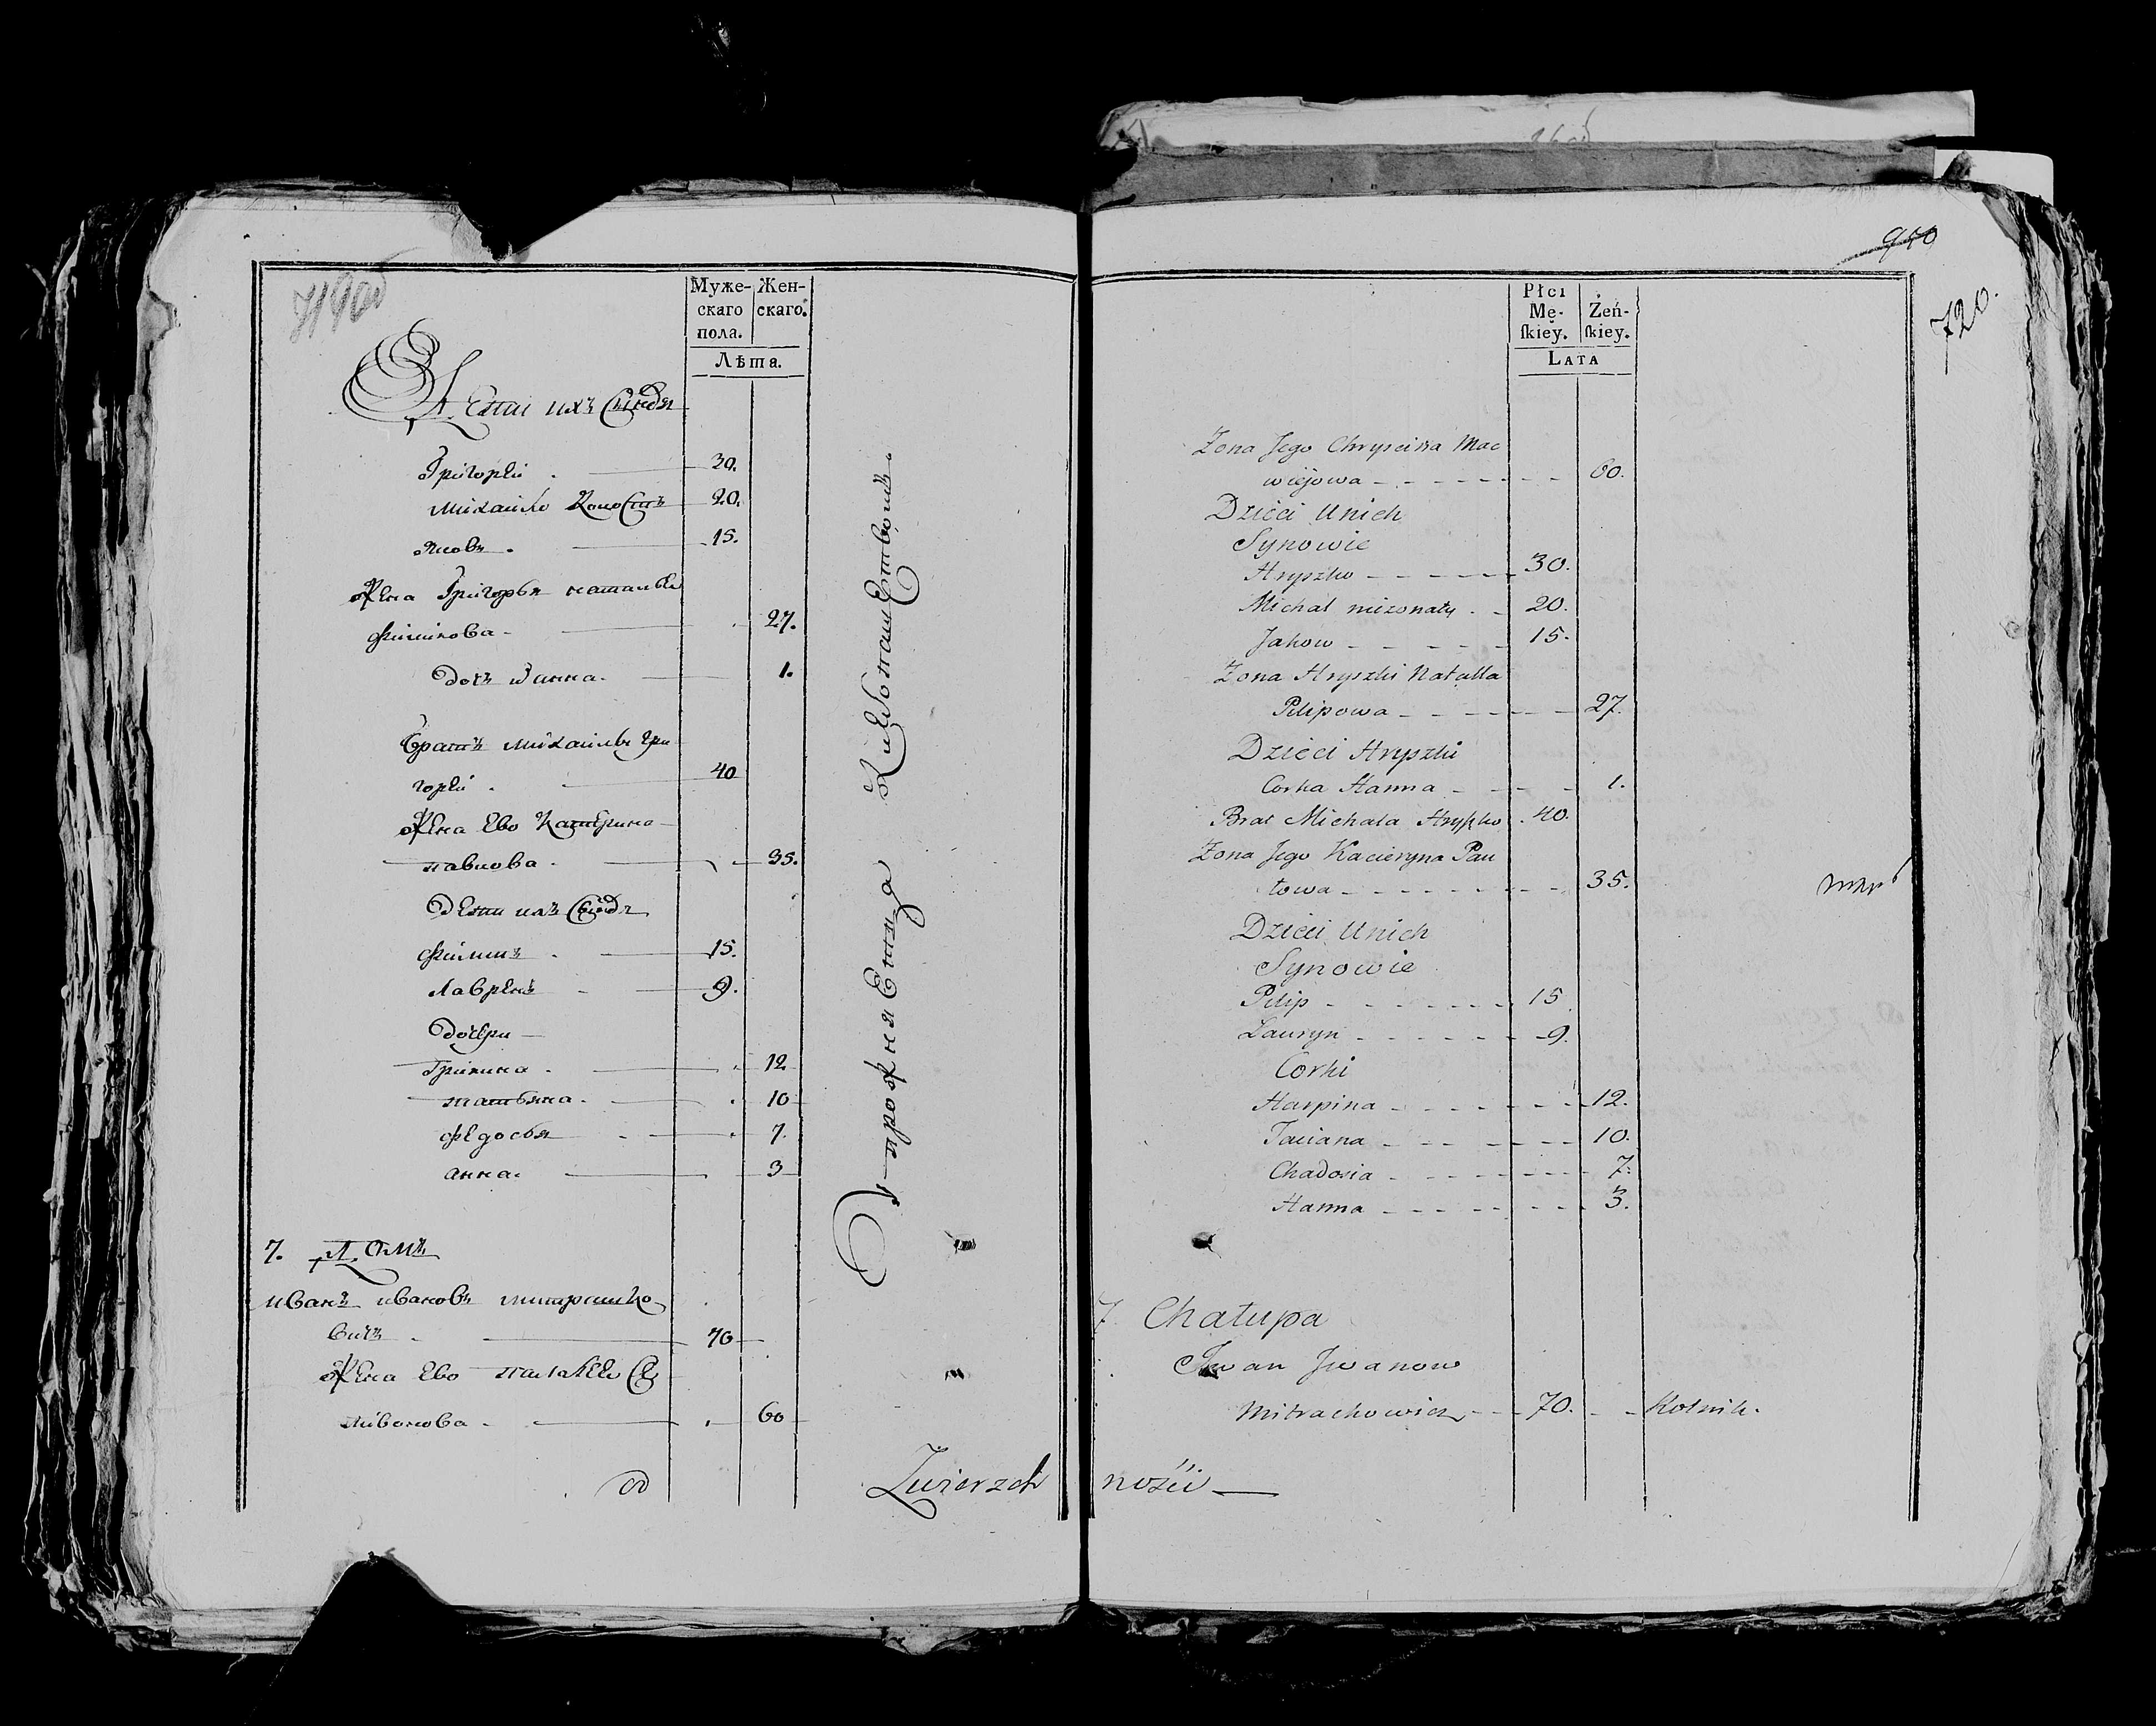 719 об
Муже-
скаго
пола.
Жен-
скаго.
Лѣта.
Дети ихъ Сыновья
Григорей . 30.
Михайло Холостъ 20.
Яковъ . 15.
Жена Григорья наталья
филипова - 27.
дочь Анна. 1.
братъ михайлы Гри
горей . 40
Жена Ево Катерина
павлова . 35.
Дети ихъ Сыновья
филипъ . 15.
Лаврѣнъ 9.
Дочери
Грипина . 12
татьяна . 10
федосья 7.
анна. 3
7. Домъ
иванъ ивановъ митрашко
вичъ . 70
Жена Ево палагея Се
ливонова - 60
Zwierzch
950
720.
Płci
Mę-
skiey.
Żeń-
skiey.
Lata
Żona Jego Chryscina Mac
wiejowa 60.
Dzieci Unich
Synowie
Hryszko 30.
Michał nieżonaty . 20.
Jakow 15.
Żona Hryszki Natalla
Pilipowa 27.
Dzieci Hryszki
Corka Hanna 1.
Brat Michała Hryszko . 40.
Żona Jego Kacieryna Pau
łowa 35.
Dzieci Unich
Synowie
Pilip 15.
Lauryn 9.
Corki
Harpina 12.
Taciana 10.
Chadosia 7.
Hanna 3.
7 Chałupa
Jwan Jwanow
Mitrachowicz 70. Rolnik.
ności